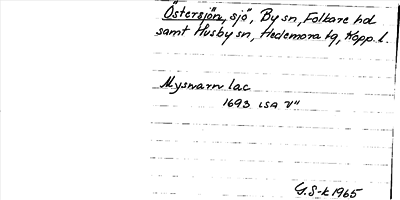 Östersjön, sjö, By sn, Folkare hd
samt Husby sn, Hedemora tg, Kopp. l.
Mysnarn lac
1693 LSA V 11
G.S-k 1965